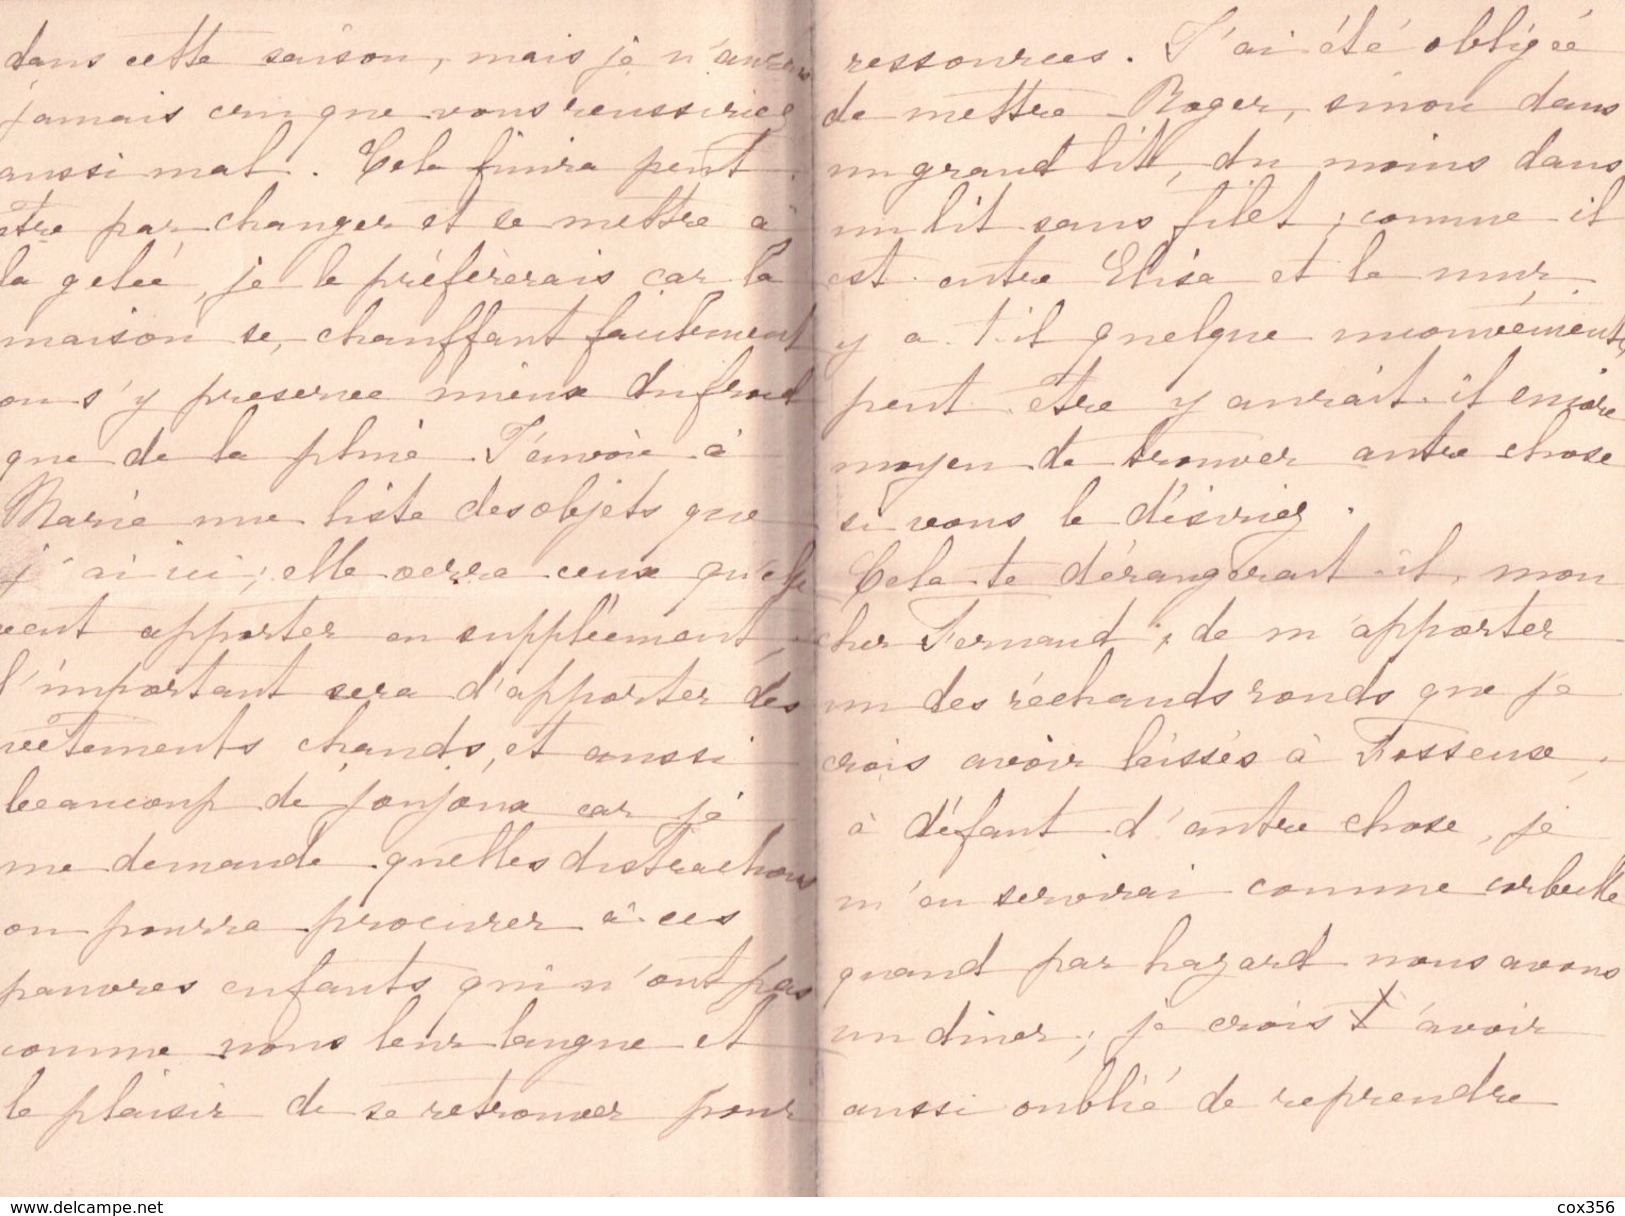 dans cette saison, mais je n'aurais
jamais cru que vous reussiriez
aussi mal. Cela finira peut
être par changer et se mettre à
la gelée, je le préfèrerais car la
maison se, chauffant facilement
on s'y preserve mieux du froid
que de la pluie. J'envoie à
Marie une liste des objets que
j'ai ici; elle verra ceux qu'elle
veut apporter en supplément,
l'important sera d'apporter des
vêtements chauds, et aussi
beaucoup de joujoux car je
me demande quelles distractions
on pourra procurer à ces
pauvres enfants qui n'ont pas
comme nous leur langue et
le plaisir de se retrouver pour
ressources. J'ai été obligée
de mettre Roger, sinon dans
un grand litt, du moins dans
un lit sans filet; comme il
est entre Elisa et le mur
y a-t-il quelque inconvénient,
peut être y aurait-il encore
moyen de trouver autre chose
si vous le désiriez.
Cela te dérangerait-il, mon
cher Fernand, de m'apporter
un des réchauds ronds que je
crois avoir laissés à Fosseuse,
à défaut d'autre chose, je
m'en servirai comme corbeille
quand par hazard nous avons
un diner; je crois t'avoir
aussi oublié de reprendre
www.delcampe.net
cox356